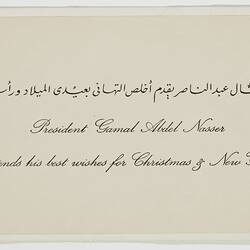 عبد الناصر يقدم أخلص التهاني بعيدي الميلاد
President Gamal Abdel Nasser
his best wishes for Christmas & New